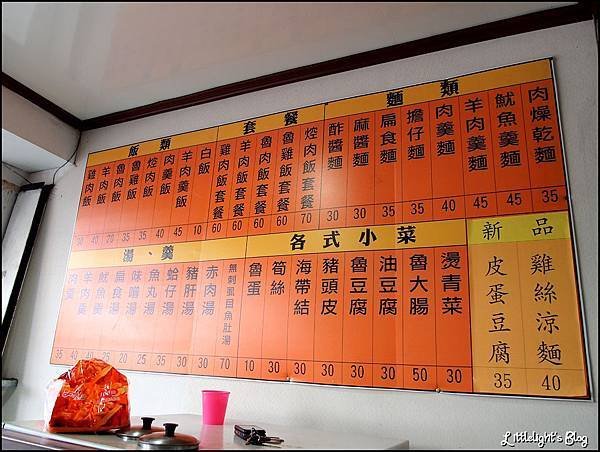 飯類
套餐
麵類
雞肉飯
羊肉飯 40
魯肉飯
魯雞飯 35
焢肉飯 35
肉羹飯 40
羊肉羹飯 45
白飯 10
雞肉飯套餐 60
羊肉飯套餐 60
魯肉飯套餐 60
魯雞飯套餐 60
焢肉飯套餐 70
酢醬麵 30
麻醬麵 30
扁食麵 35
擔仔麵 40
肉羹麵 40
羊肉羹麵 45
魷魚羹麵 45
肉燥乾麵 35
湯、羹
各式小菜
新品
肉羹 35
羊肉羹 40
魷魚羹
扁食湯
味噌湯 20
魚丸湯 25
蛤仔湯 35
豬肝湯 35
赤肉湯 35
無刺虱目魚肚湯 70
魯蛋 10
筍絲 30
海帶結 30
豬頭皮 30
魯豆腐 30
油豆腐 30
魯大腸 50
燙青菜 30
皮蛋豆腐 35
雞絲涼麵 40
Littlelight's Blog